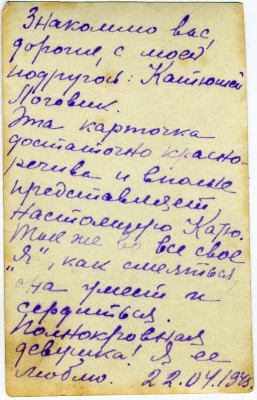 Знакомлю вас,
дорогие, с моей
подругой: Катюшей
Логовик.
Эта карточка
достаточно красно-
речива и вполне
представляет
настоящую Катю.
Так же во все свое
"Я", как смеяться,
она умеет и
сердиться.
Полнокровная
девушка! Я ее
люблю. 22.04.194